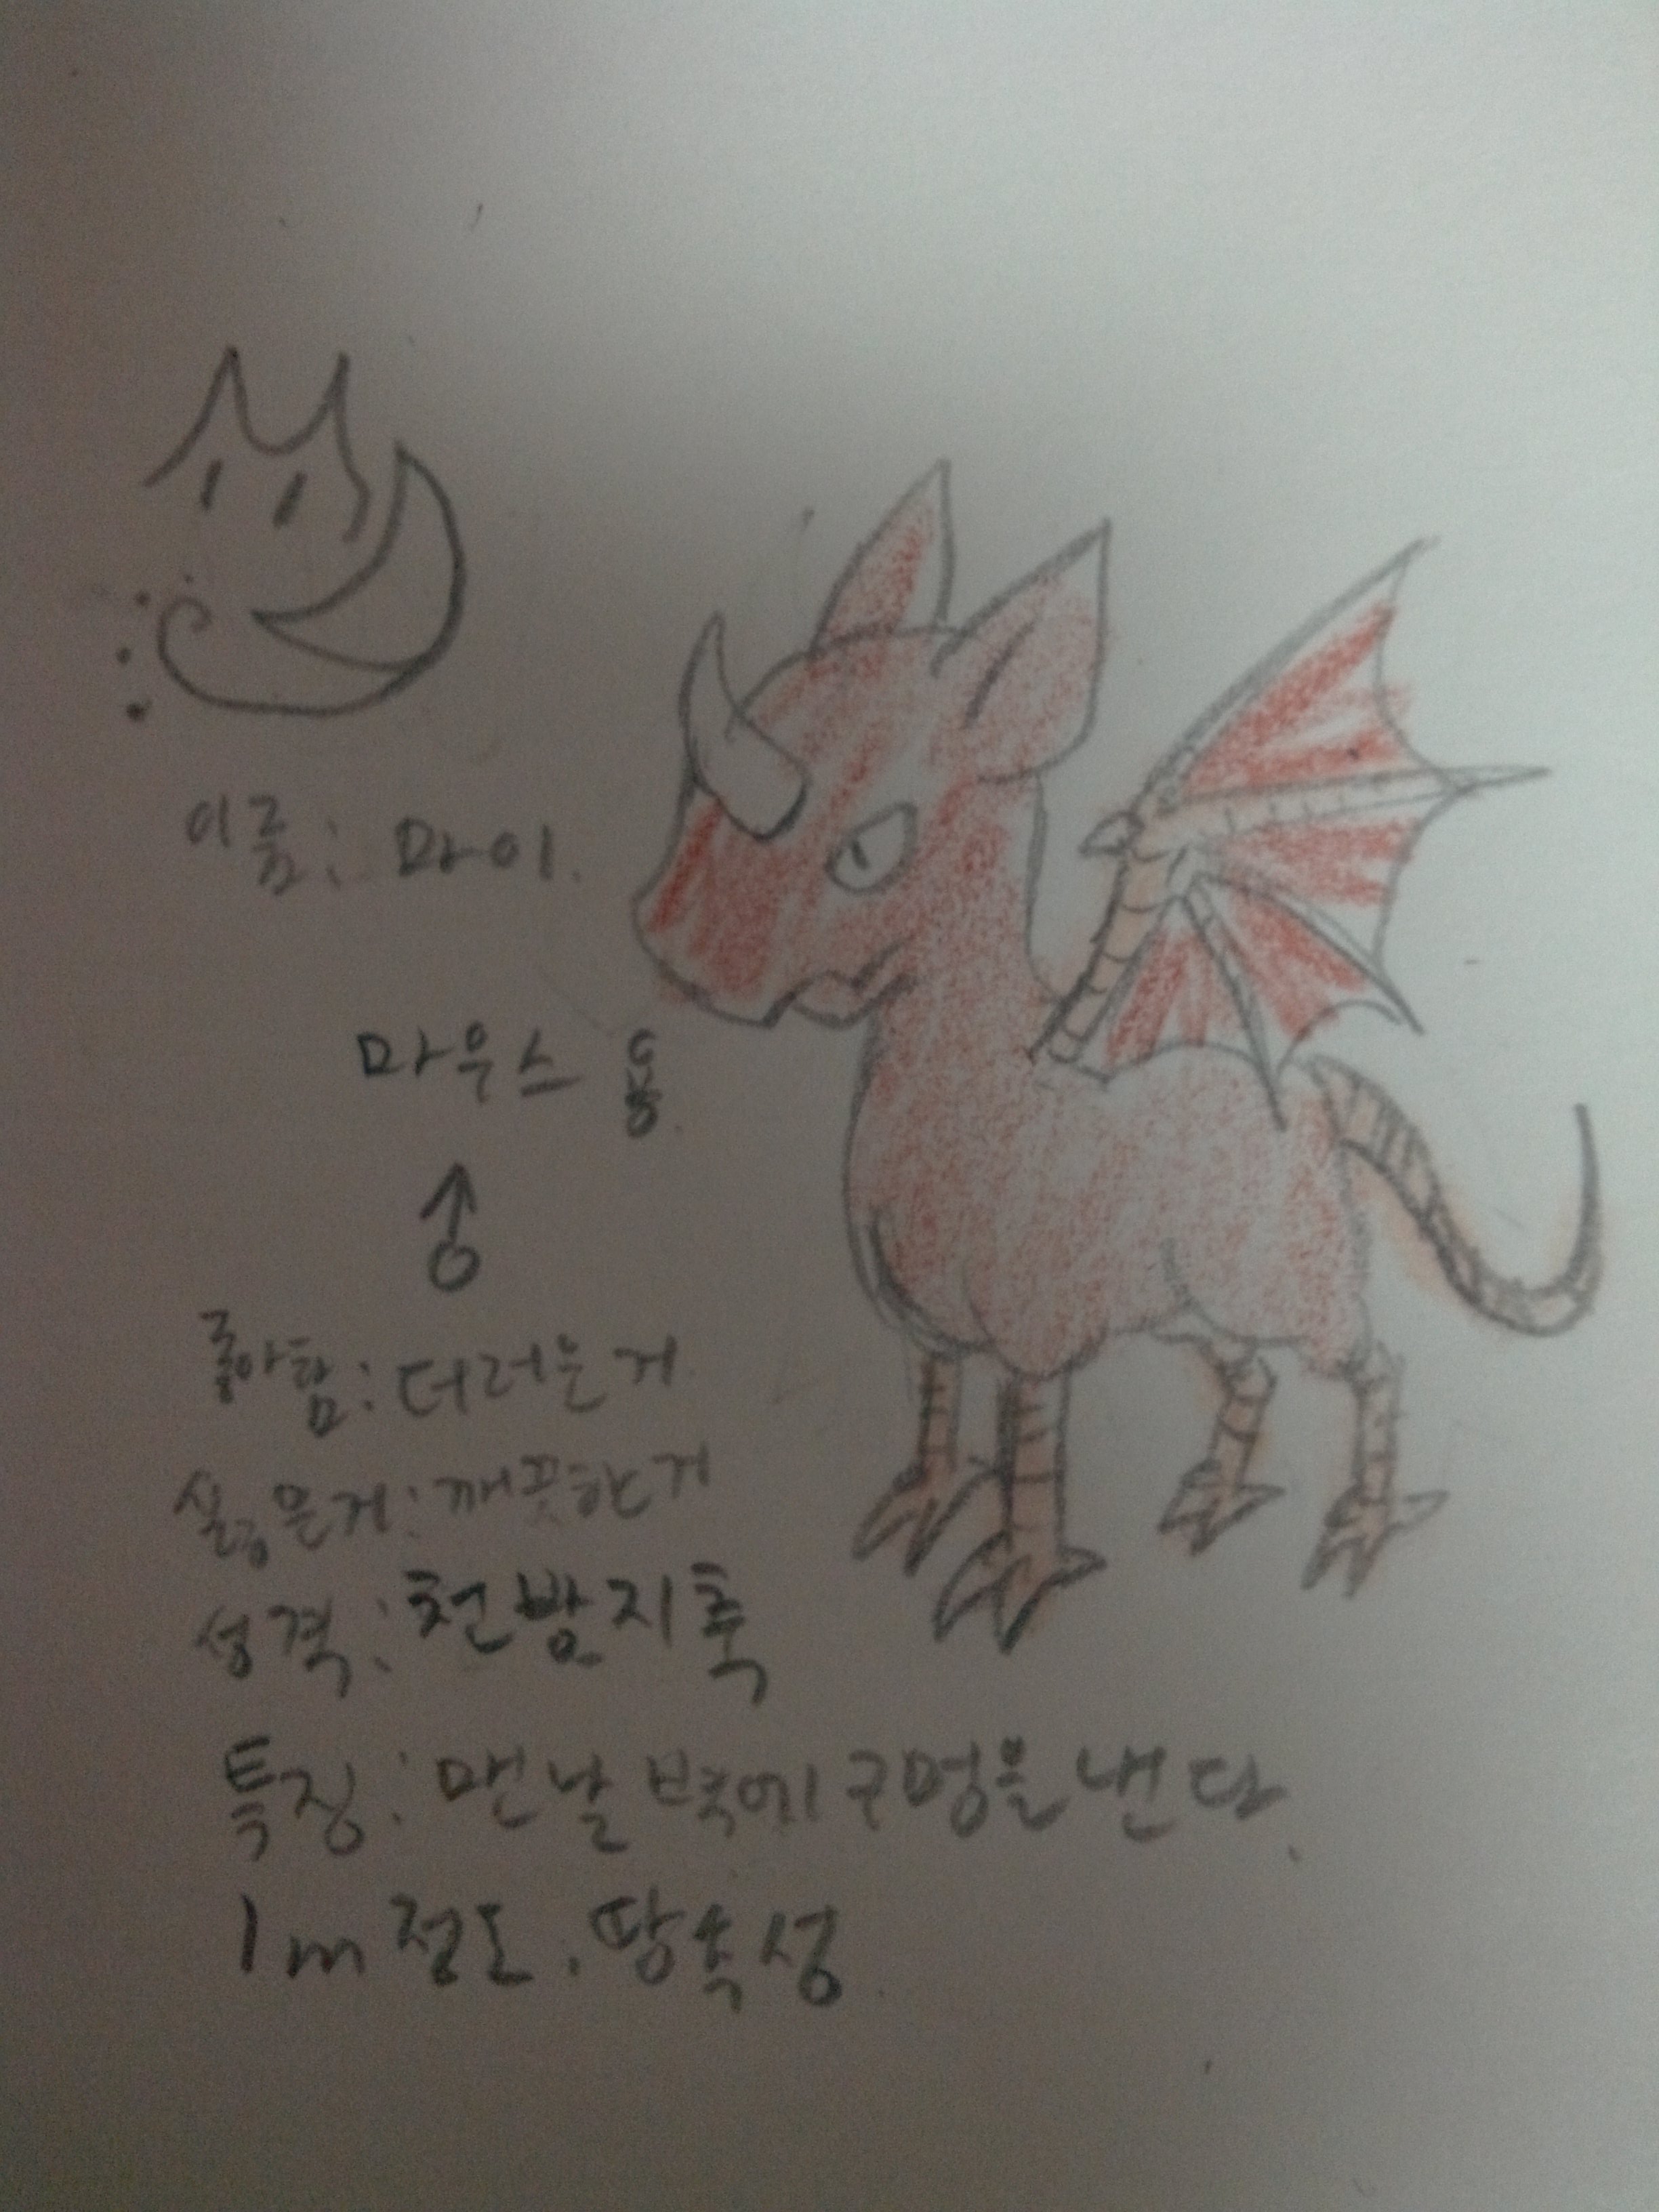 이름: 마이.
마우스 용.
좋아함: 더러운거.
싫응믄거: 깨끗한거
성격: 천방지축
특징: 맨날 벽에 구멍을 낸다.
1m 정도. 땅속성.